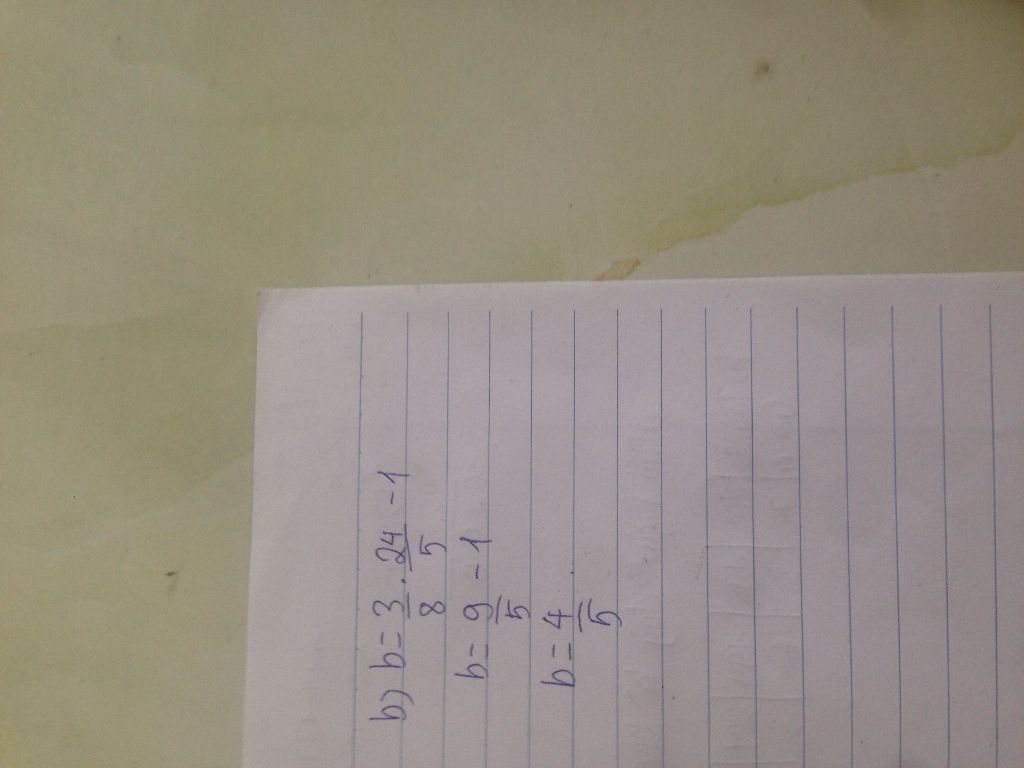 b) b = 3/8 . 24/5 - 1
b = 9/5 - 1
b = 4/5